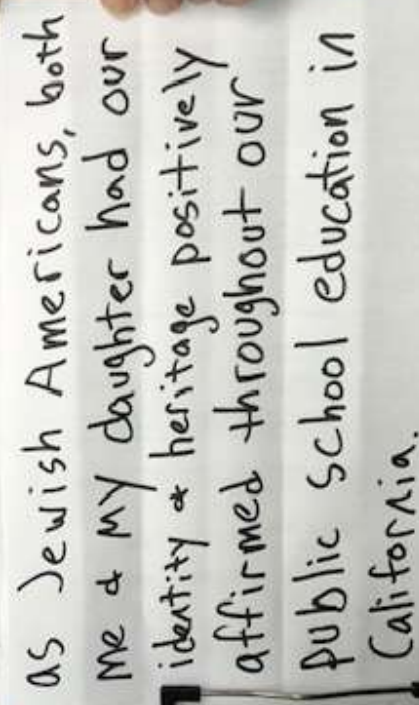 as Jewish Americans, both
me & my daughter had our
identity & heritage positively
affirmed throughout our
public school education in
California.